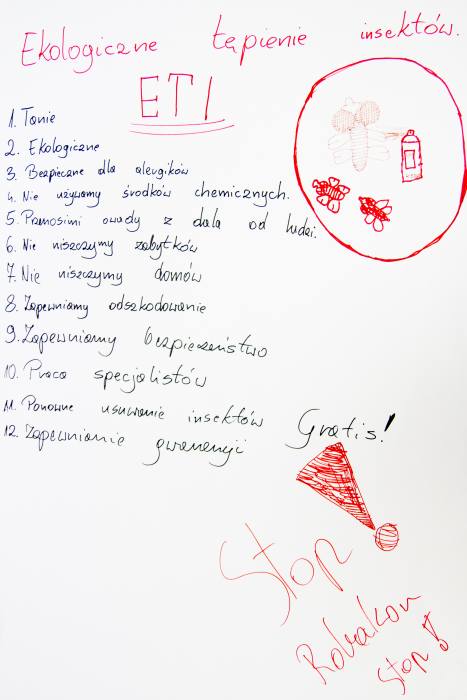 Ekologiczne tępienie insektów.
ETI
1. Tanie
2. Ekologiczne
3. Bezpieczne dla alergików
4. Nie używamy środków chemicznych.
5. Pranosimi owady z dala od ludzi.
6. Nie niszczymy zabytków
7. Nie niszczymy domów
8. Zapewniamy odszkodowanie
9. Zapewniamy bezpieczeństwo
10. Praca specjalistów
11. Ponowne usuwanie insektów Gratis!
12. Zapewnianie gwarancji
Stop
Robakom
Stop!